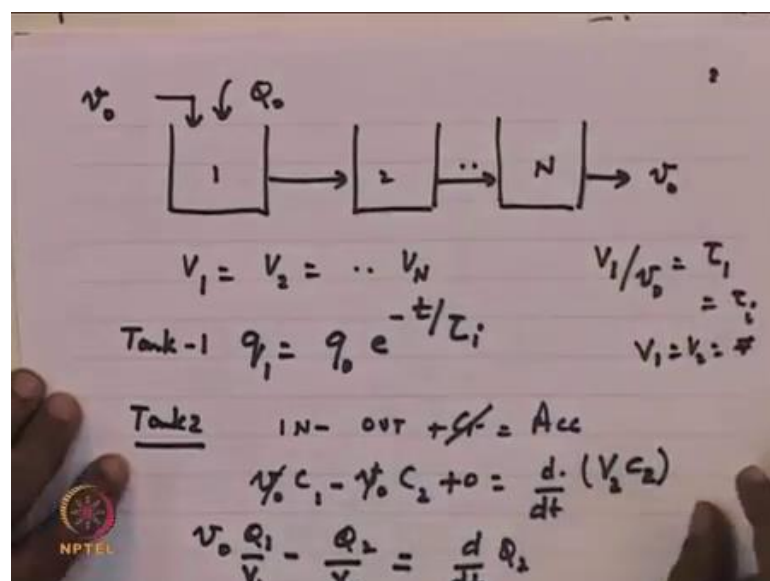 2
v₀ Q₀
1 2 .. N v₀
V₁ = V₂ = .. V_N V₁/v₀ = τ₁
= τᵢ
Tank-1 q₁ = q₀ e^(-t/τᵢ) V₁ = V₂ =
Tank2 IN - OUT + G = Acc
v₀ C₁ - v₀ C₂ + 0 = d/dt (V₂ C₂)
v₀ Q₁/V - Q₂/V = d/dt Q₂
NPTEL